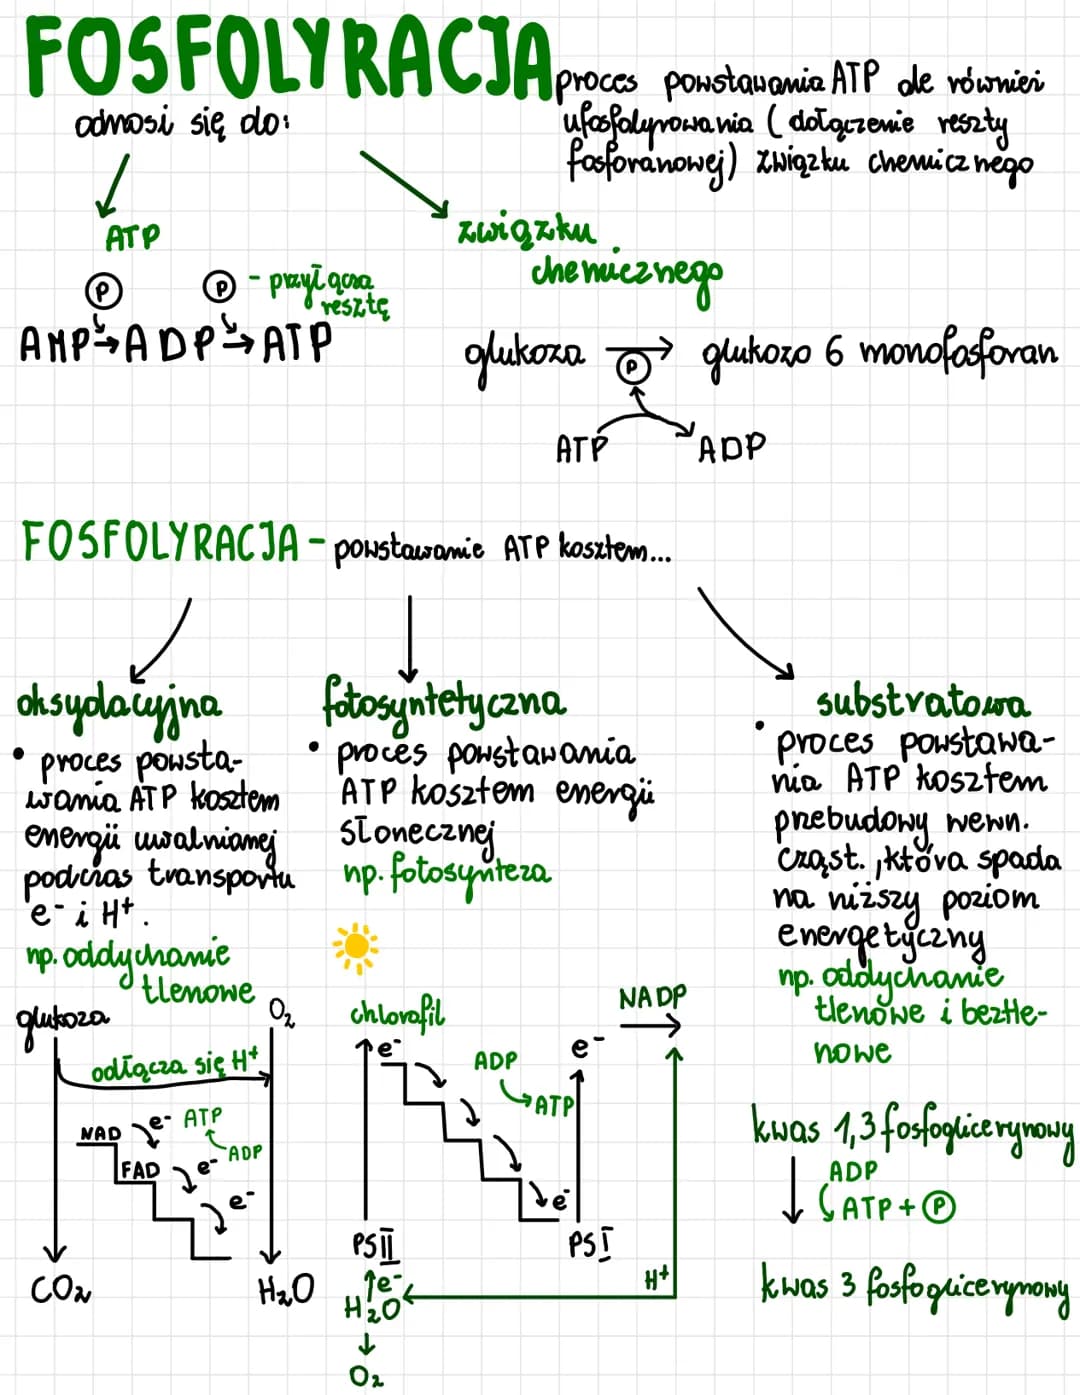 FOSFOLYRACJA
proces powstawania ATP ale również
ufosfolyrowania ( dołączenie reszty
fosforanowej) związku chemicznego
odnosi się do:
ATP
związku
chemicznego
P P - przyłącza
resztę
AMP → ADP → ATP
glukoza → glukozo 6 monofosforan
P
ATP ADP
FOSFOLYRACJA - powstawanie ATP kosztem...
oksydacyjna
• proces powsta-
wania ATP kosztem
energii uwalnianej
podczas transportu
e⁻ i H⁺.
np. oddychanie
tlenowe
glukoza
O₂
odłącza się H⁺
NAD e⁻ ATP
ADP
FAD e⁻
e⁻
CO₂ H₂O
fotosyntetyczna
• proces powstawania
ATP kosztem energii
słonecznej
np. fotosynteza
chlorofil
NADP
e⁻ ADP e⁻
ATP
e⁻
PSII PSI
e⁻ H⁺
H₂O
O₂
substratowa
• proces powstawa-
nia ATP kosztem
przebudowy wewn.
cząst. , która spada
na niższy poziom
energetyczny
np. oddychanie
tlenowe i beztle-
nowe
kwas 1,3 fosfoglicerynowy
ADP
ATP + P
kwas 3 fosfoglicerynowy